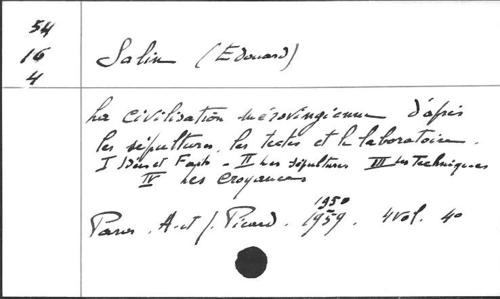 54
16
4
Salin (Edouard)
La civilisation mérovingienne d'après
les sépultures, les textes et le laboratoire.
I Idées et Faits - II Les sépultures III Les Techniques
IV Les Croyances
1950
Paris. A. et J. Picard. 1959. 4 vol. 4o